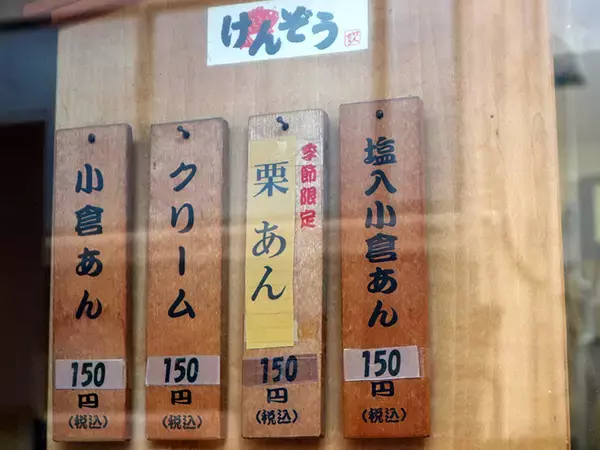 けんぞう
塩入小倉あん
150
円
(税込)
季節限定
栗あん
150
円
(税込)
クリーム
150
円
(税込)
小倉あん
150
円
(税込)